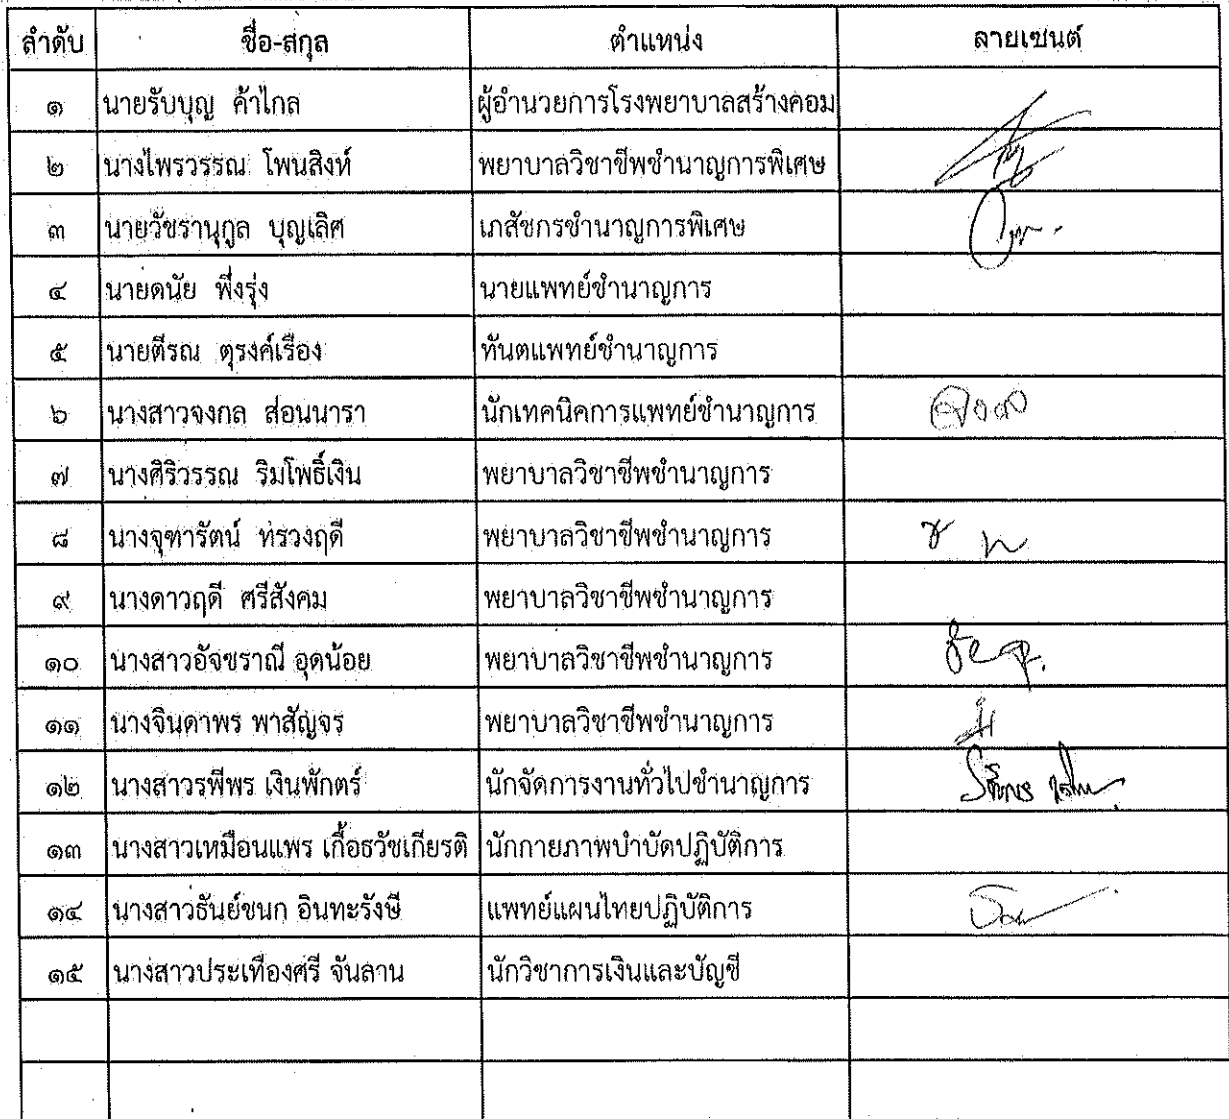 ลำดับ ชื่อ-สกุล ตำแหน่ง ลายเซนต์
๑ นายรับบุญ ค้าไกล ผู้อำนวยการโรงพยาบาลสร้างคอม
๒ นางไพรวรรณ โพนสิงห์ พยาบาลวิชาชีพชำนาญการพิเศษ
๓ นายวัชรานุกูล บุญเลิศ เภสัชกรชำนาญการพิเศษ
๔ นายดนัย พึ่งรุ่ง นายแพทย์ชำนาญการ
๕ นายตีรณ ตุรงค์เรือง ทันตแพทย์ชำนาญการ
๖ นางสาวจงกล ส่อนนารา นักเทคนิคการแพทย์ชำนาญการ
๗ นางศิริวรรณ ริมโพธิ์เงิน พยาบาลวิชาชีพชำนาญการ
๘ นางจุฑารัตน์ ทรวงฤดี พยาบาลวิชาชีพชำนาญการ
๙ นางดาวฤดี ศรีสังคม พยาบาลวิชาชีพชำนาญการ
๑๐ นางสาวอัจชราณี อุดน้อย พยาบาลวิชาชีพชำนาญการ
๑๑ นางจินดาพร พาสัญจร พยาบาลวิชาชีพชำนาญการ
๑๒ นางสาวรพีพร เงินพักตร์ นักจัดการงานทั่วไปชำนาญการ
๑๓ นางสาวเหมือนแพร เกื้อธวัชเกียรติ นักกายภาพบำบัดปฏิบัติการ
๑๔ นางสาวธันย์ชนก อินทะรังษี แพทย์แผนไทยปฏิบัติการ
๑๕ นางสาวประเทืองศรี จันลาน นักวิชาการเงินและบัญชี